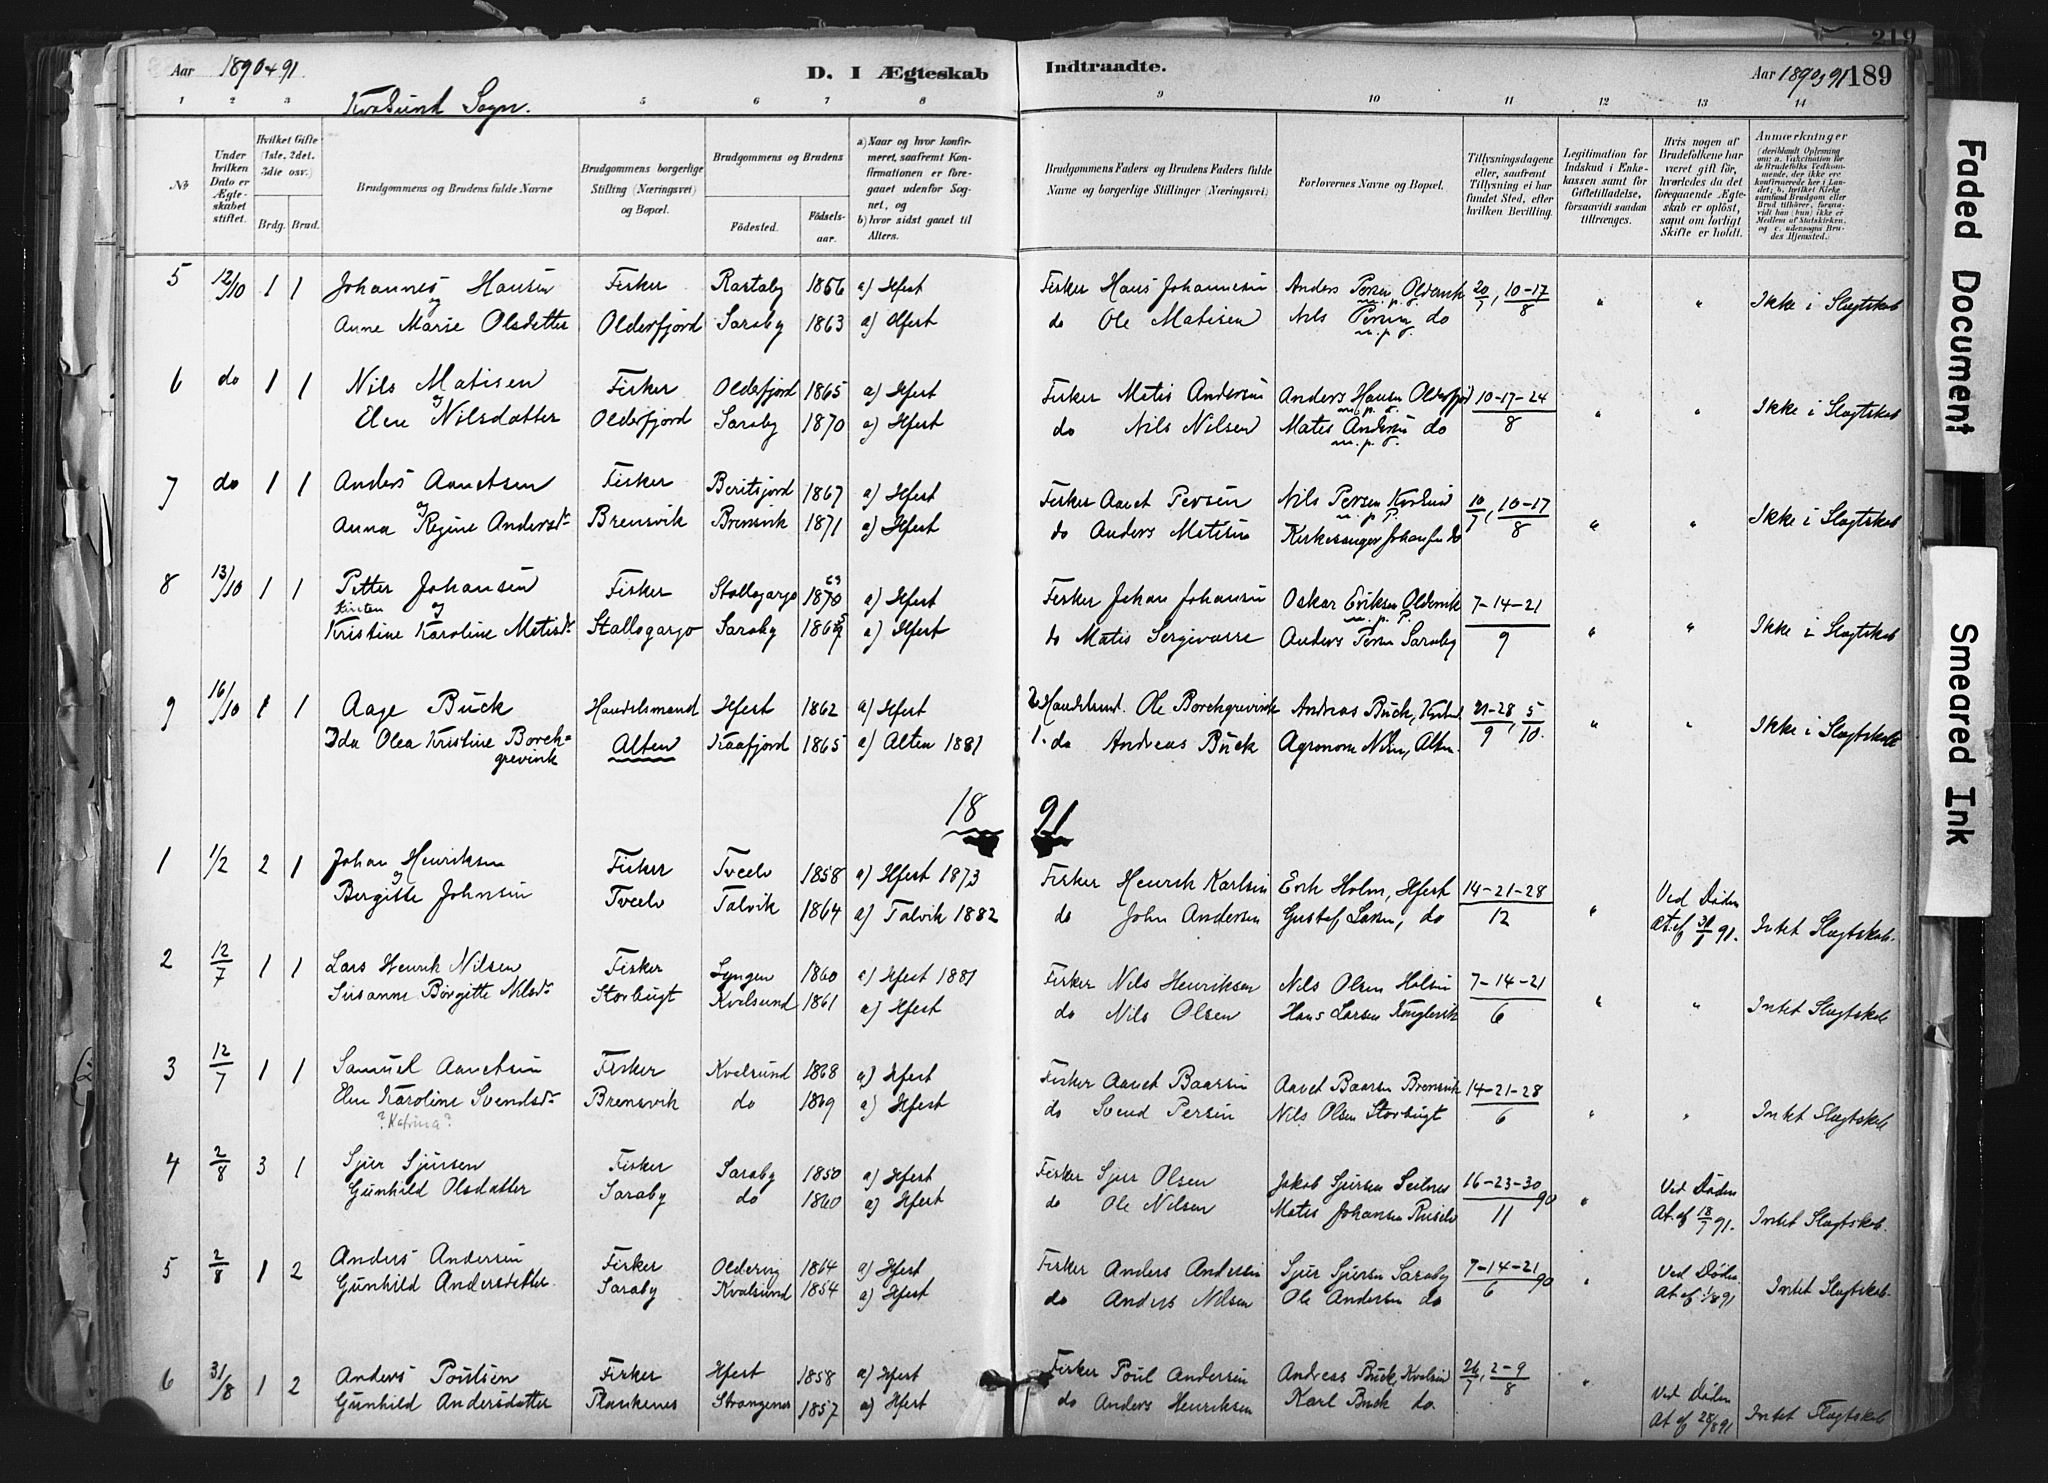 219
Aar 1890 & 91. D. I Ægteskab Indtraadte. Aar 1890 & 91 189
Kvalsund Sogn.
1 2 3 5 6 7 8 9 10 11 12 13 14
No
Under hvilken Dato er Ægteskabet stiftet.
Hvilket Gifte (1ste, 2det, 3die osv.)
Brdg. Brud.
Brudgommens og Brudens fulde Navne
Brudgommens borgerlige Stilling (Næringsvei) og Bopæl.
Brudgommens og Brudens
Födested. Födselsaar.
a) Naar og hvor konfirmeret, saafremt Konfirmationen er foregaaet udenfor Sognet, og
b) hvor sidst gaaet til Alters.
Brudgommens Faders og Brudens Faders fulde Navne og borgerlige Stillinger (Næringsvei)
Forlovernes Navne og Bopæl.
Tillysningsdagene eller, saafremt Tillysning ei har fundet Sted, efter hvilken Bevilling.
Legitimation for Indskud i Enkekassen samt for Giftetilladelse, forsaavidt saadan tiltrænges.
Hvis nogen af Brudefolkene har været gift før, hvorledes da det foregaaende Ægteskab er opløst, samt om lovligt Skifte er holdt.
Anmærkninger
(deriblandt Oplysning om: a. Vakcination for Brudefolks Vedkommende, der ikke ere konfirmerede her i Landet; b. hvilket Kirkesamfund Brudgom eller Brud tilhører, forsaavidt han (hun) ikke er Medlem af Statskirken, og c. udensogns Brudes Hjemsted.)
5 12/10 1 1 Johannes Hansen Fisker Rastaby 1866 a) Hfest Fisker Hans Johannesen Anders Persen Oldervik 20/7, 10-17/8 " " Ikke i Slægtskab
og m. p. P.
Anne Marie Olsdatter Olderfjord Saraby 1863 a) Hfest do Ole Matisen Nils Persen do
m. p. P.
6 do 1 1 Nils Matisen Fisker Olderfjord 1865 a) Hfest Fisker Matis Andersen Anders Hansen Olderfjord 10-17-24/8 " " Ikke i Slægtskab
og m. p. P.
Elen Nilsdatter Olderfjord Saraby 1870 a) Hfest do Nils Nilsen Matis Andersen do
m. p. P.
7 do 1 1 Anders Aanetsen Fisker Beritsjord 1867 a) Hfest Fisker Aanet Persen Nils Persen Kvalsund 10/7, 10-17/8 " " Ikke i Slægtskab
og m. p. P.
Anna Regine Andersdr Brensvik Brensvik 1871 a) Hfest do Anders Matisen Kirkesanger Johansen do
8 13/10 1 1 Petter Johansen Fisker Stallogargo 1870 63 a) Hfest Fisker Johan Johansen Oskar Eriksen Oldervik 7-14-21/9 " " Ikke i Slægtskab
Kirsten og m. p. P.
Kristine Karoline Matisdr Stallogargo Saraby a) Hfest do Matis Sergivarre Anders Persen Saraby
9 16/10 1 1 Aage Buck Handelsmand Hfest 1862 a) Hfest 2. Handelsmd. Ole Borchgrevink Andreas Buck, Kvalsd. 21-28/9, 5/10. " " Ikke i Slægtskab
Ida Olea Kristine Borch= Alten Kaafjord 1865 a) Alten 1881 1. do Andreas Buck Agronom Nilsen, Alten.
grevink
18 91
1 1/2 2 1 Johan Henriksen Fisker Tveelv 1858 a) Hfest 1873 Fisker Henrik Karlsen Erik Holm, Hfest 14-21-28/12 " Ved Døden
og
Bergitte Johnsen Tveelv Talvik 1864 a) Talvik 1882 do John Andersen Gustaf Larsen, do At. af 31/1 91. Intet Slægtskab.
2 12/7 1 1 Lars Henrik Nilsen Fisker Lyngen 1860 a) Hfest 1881 Fisker Nils Henriksen Nils Olsen Holsen 7-14-21/6 " " Intet Slægtskab
Susanne Birgitte Nilsdr Storbugt Kvalsund 1861 a) Hfest do Nils Olsen Hans Larsen Konglevik
3 12/7 1 1 Samuel Aanetsen Fisker Kvalsund 1868 a) Hfest Fisker Aanet Baarsen Aanet Baarsen Brensvik 14-21-28/6 " " Intet Slægtskab
Elen Karoline Svendsdr Brensvik do 1869 a) Hfest do Svend Persen Nils Olsen Storbugt
? Katrina ?
4 2/8 3 1 Sjur Sjursen Fisker Saraby 1850 a) Hfest Fisker Sjur Olsen Jakob Sjursen Seilnes 16-23-30/11 90 " Ved Døden
Gunhild Olsdatter Saraby do 1860 a) Hfest do Ole Nilsen Matis Johansen Ruselv At. af 18/7 91. Intet Slægtskab.
5 2/8 1 2 Anders Andersen Fisker Oldervig 1864 a) Hfest Fisker Anders Andersen Sjur Sjursen Saraby 7-14-21/6 90 " Ved Døden Intet Slægtskab.
Gunhild Andersdatter. Saraby Kvalsund 1854 a) Hfest do Anders Nilsen Ole Andersen do At. af 1/8 91
6 31/8 1 2 Anders Poulsen Fisker Hfest 1858 a) Hfest Fisker Poul Andersen Andreas Buck, Kvalsund 26/7, 2-9/8 " Ved Døden
Gunhild Andersdatter Plankenes Strangenes 1857 a) Hfest do Anders Henriksen Karl Buck do. At. af 28/8 91 Intet Slægtskab
Faded Document
Smeared Ink